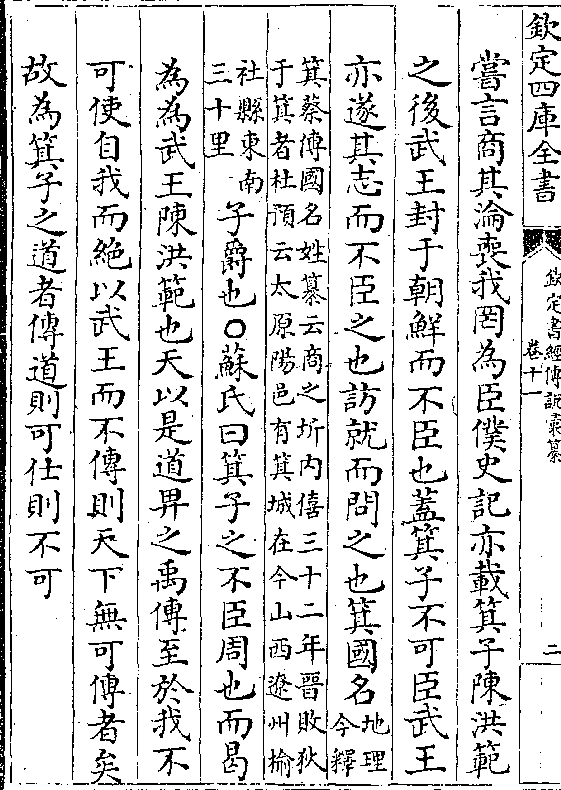 欽定四庫全書
欽定書經傳說彙纂
卷十一
二
嘗言商其淪喪我罔為臣僕史記亦載箕子陳洪範
之後武王封于朝鮮而不臣也蓋箕子不可臣武王
亦遂其志而不臣之也訪就而問之也箕國名
地理
今釋
箕蔡傳國名姓纂云商之圻內僖三十二年晉敗狄
于箕者杜預云太原陽邑有箕城在今山西遼州榆
社縣東南
三十里
子爵也○蘇氏曰箕子之不臣周也而曷
為為武王陳洪範也天以是道畀之禹傳至於我不
可使自我而絕以武王而不傳則天下無可傳者矣
故為箕子之道者傳道則可仕則不可